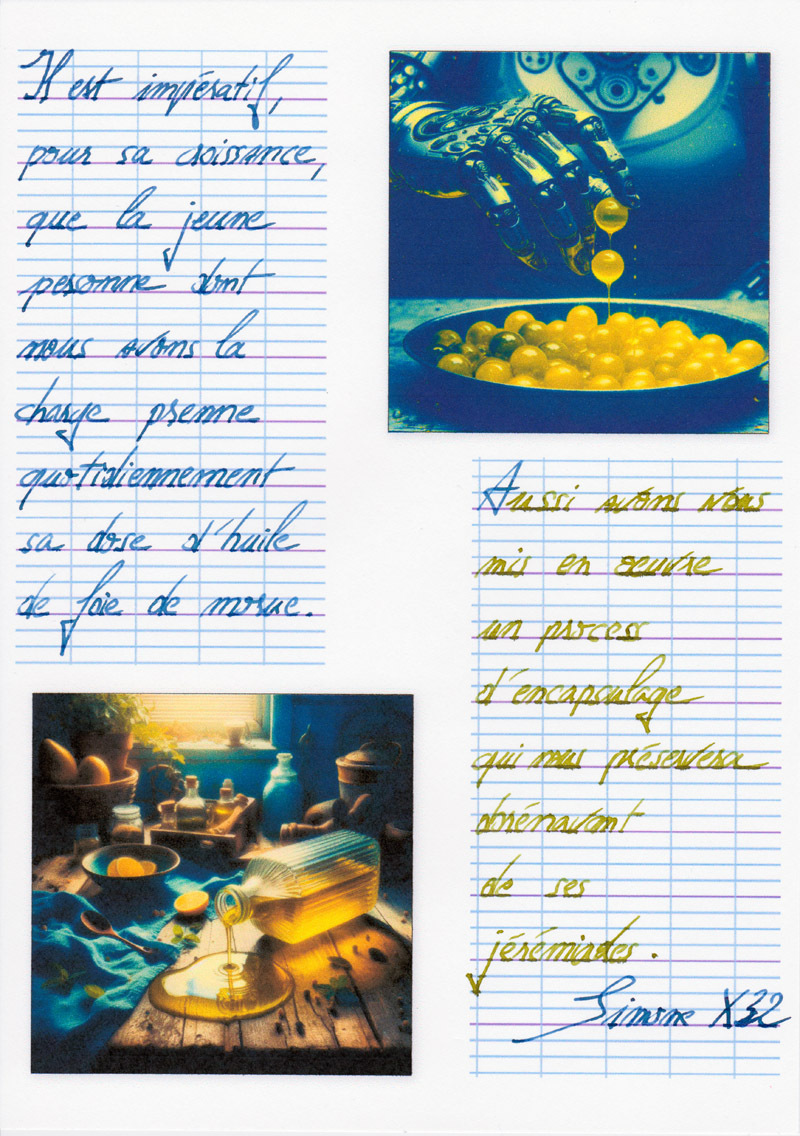 Il est impératif,
pour sa croissance,
que la jeune
pesonne dont
nous avons la
charge prenne
quotidiennement
sa dose d'huile
de foie de morue.
Aussi avons nous
mis en oeuvre
un process
d'encapsulage
qui nous préservera
dorénavant
de ses
jérémiades.
Simone X32